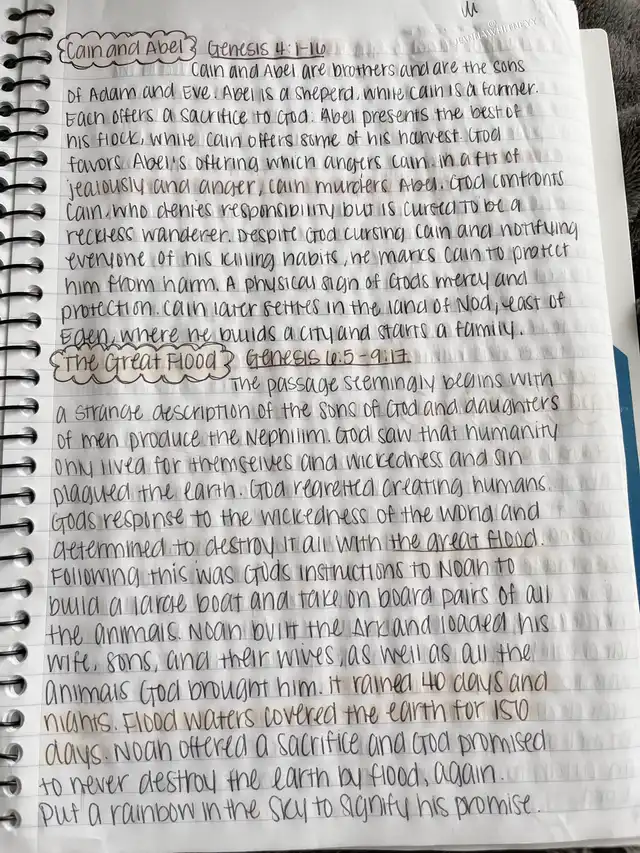 Cain and Abel Genesis 4:1-16
Cain and Abel are brothers and are the sons
of Adam and Eve. Abel is a sheperd, while cain is a farmer.
Each offers a sacrifice to God. Abel presents the best of
his flock, while Cain offers some of his harvest. God
favors Abel's offering which angers cain. in a fit of
jealously and anger, cain murders Abel. God confronts
Cain, who denies responsibility but is cursed to be a
reckless wanderer. Despite God cursing Cain and notifying
everyone of his killing habits, he marks Cain to protect
him from harm. A physical sign of Gods mercy and
protection. Cain later settles in the land of Nod, east of
Eden, where he builds a city and starts a family.
The Great Flood Genesis 6:5-9:17
The passage seemingly begins with
a strange description of the sons of God and daughters
of men produce the Nephilim. God saw that humanity
only lived for themselves and wickedness and sin
plagued the earth. God regretted creating humans.
Gods response to the wickedness of the world and
determined to destroy it all with the great flood.
Following this was Gods instructions to Noah to
build a large boat and take on board pairs of all
the animals. Noah built the Ark and loaded his
wife, sons, and their wives, as well as all the
animals God brought him. it rained 40 days and
nights. Flood waters covered the earth for 150
days. Noah offered a sacrifice and God promised
to never destroy the earth by flood, again.
Put a rainbow in the sky to signify his promise.